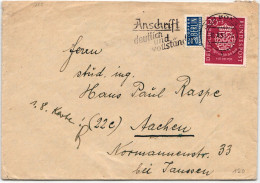 Anschrift
deutlich
und
vollständig
BERLIN
20
DEUTSCHE
BUNDESPOST
Herrn
stud. ing.
Hans Paul Raspe
(22c) Aachen
Normannenstr. 33
bei Janssen